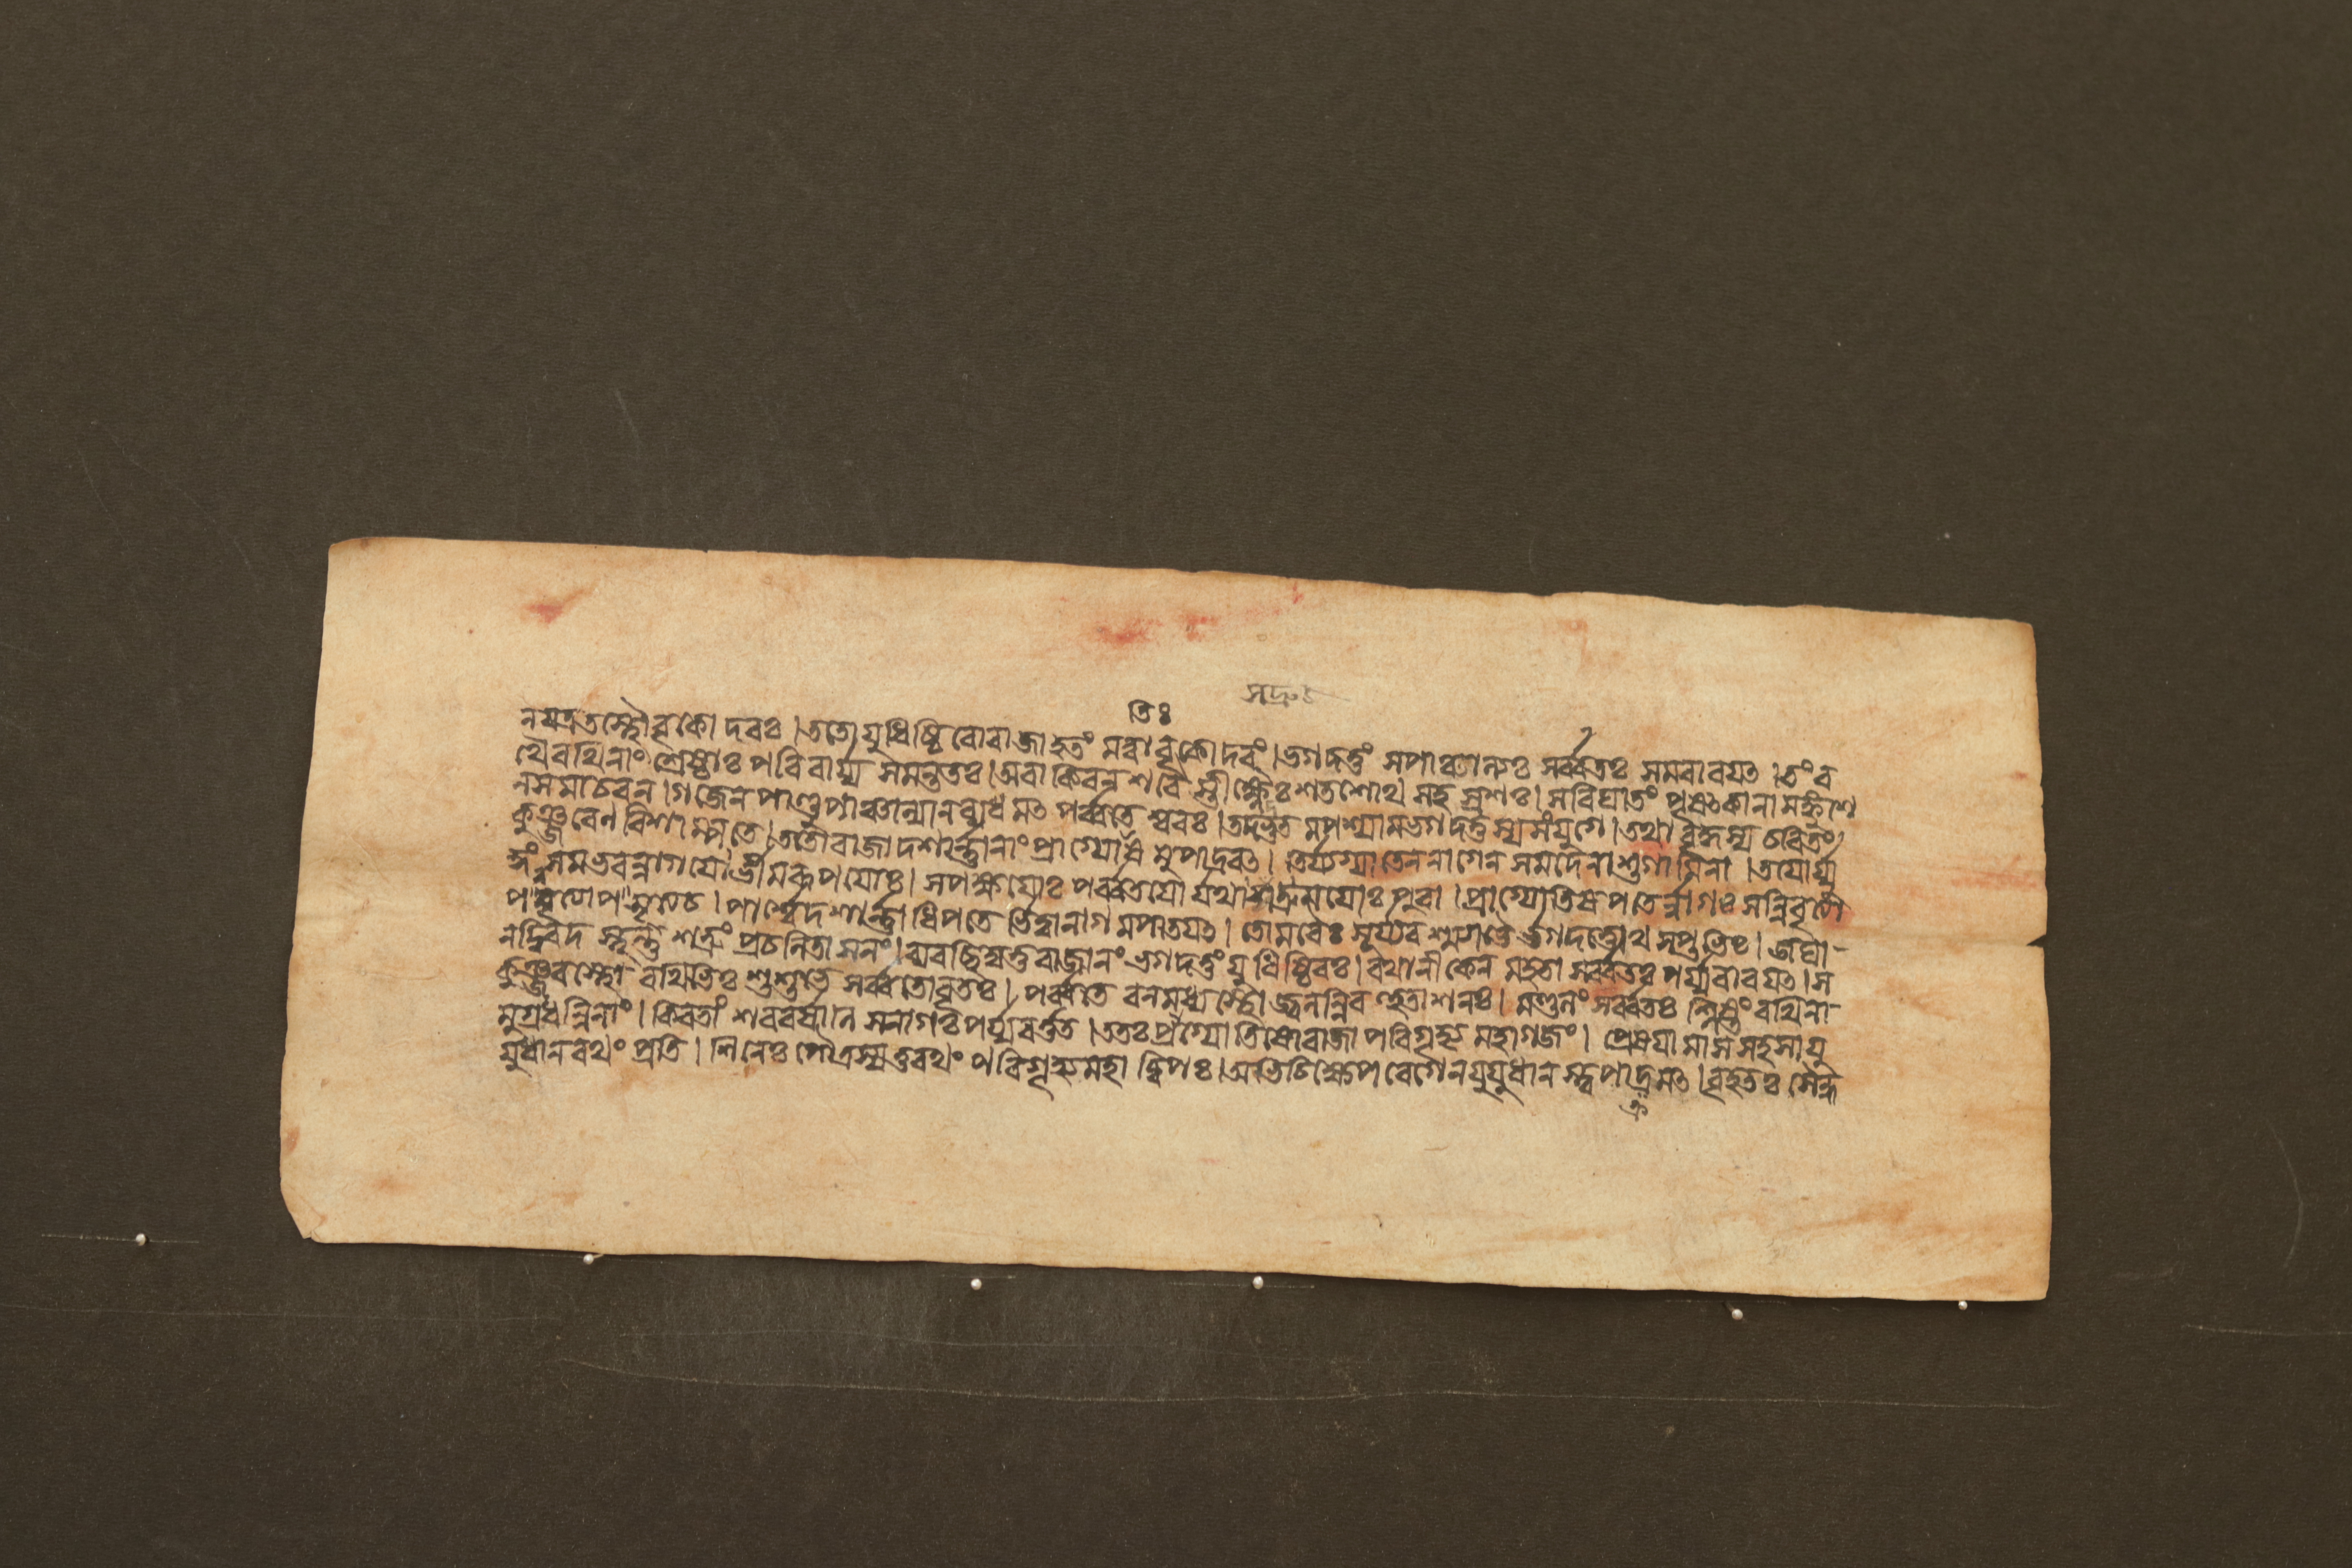 তিঃ সদ্রু
নযত্রতস্থৌবৃকোদরঃ।ততোযুধিষ্ঠিরোরাজাহতং মত্বাবৃকোদরং।ভগদত্তং সপাঞ্চালঃ সর্ব্বতঃ সমবারযত।তং র
থৈরথিনাং শ্রেষ্ঠাঃ পরিবার্য্য সমন্ততঃ।অবাকিরন শরৈ স্তীক্ষ্ণৈঃ শতশোথ সহস্রশঃ।সবিঘাতং পৃষৎকানামঙ্কুশে
নসমাচরন।গজেনপাণ্ডুপাঞ্চালান্মানব্যধমৎ পর্ব্বতেশ্বরঃ।তদদ্ভুতমপশ্যামভগদত্তস্যসংযুগে।তথাবৃদ্ধস্য চরিতং
কুঞ্জরেণবিশাম্পতে।ততোরাজাদশার্ন্নানাং প্রাগ্যোতিষমুপাদ্রবৎ।তির্য্যগ্যাতেননাগেন সমদেনাশুগামিনা।তযোর্যু
দ্ধং সমভবন্নাগযোর্ভীমরূপযোঃ।সপক্ষযোঃ পর্ব্বতযোর্যথাসদ্রুমযোঃ পুরা।প্রাগ্যোতিষপতের্ন্নাগঃ সন্নিবৃত্যো
পসৃত্য চ।পার্শ্বেদশার্ন্নাধিপতের্ভিত্বানাগমপাতযৎ।তোমরৈঃ সূর্য্যরশ্ম্যাভৈর্ভগদত্তোথ সপ্তভিঃ।জঘা-
নদ্বিরদস্থন্তং শত্রুং প্রচলিতাসনং।ব্যবচ্ছিদ্যতুরাজানং ভগদত্তং যুধিষ্ঠিরঃ।রথানীকেন মহতা সর্ব্বতঃ পর্য্যবারযৎ।স
কুঞ্জরস্থো রথিভিঃ শুশুভে সর্ব্বতোবৃতঃ।পর্ব্বতে বনমধ্যস্থো জ্বলন্নিব হুতাশনঃ।মণ্ডলং সর্ব্বতঃ শ্লিষ্টং রথিনা-
মুগ্রধন্বিনাং।কিরতাং শরবর্ষাণি সনাগঃ পর্য্যবর্ত্তত।ততঃ প্রাগ্যোতিষোরাজা পরিগৃহ্য মহাগজং।প্রেষযামাস সহসা যু
যুধানরথং প্রতি।শিনেঃ পৌত্রস্যতুরথং পরিগৃহ্যমহাদ্বিপঃ।অভিচিক্ষেপ বেগেনযুযুধানস্ত্বপাদ্রমৎ।বৃহতঃ সৈন্ধ
ক্র